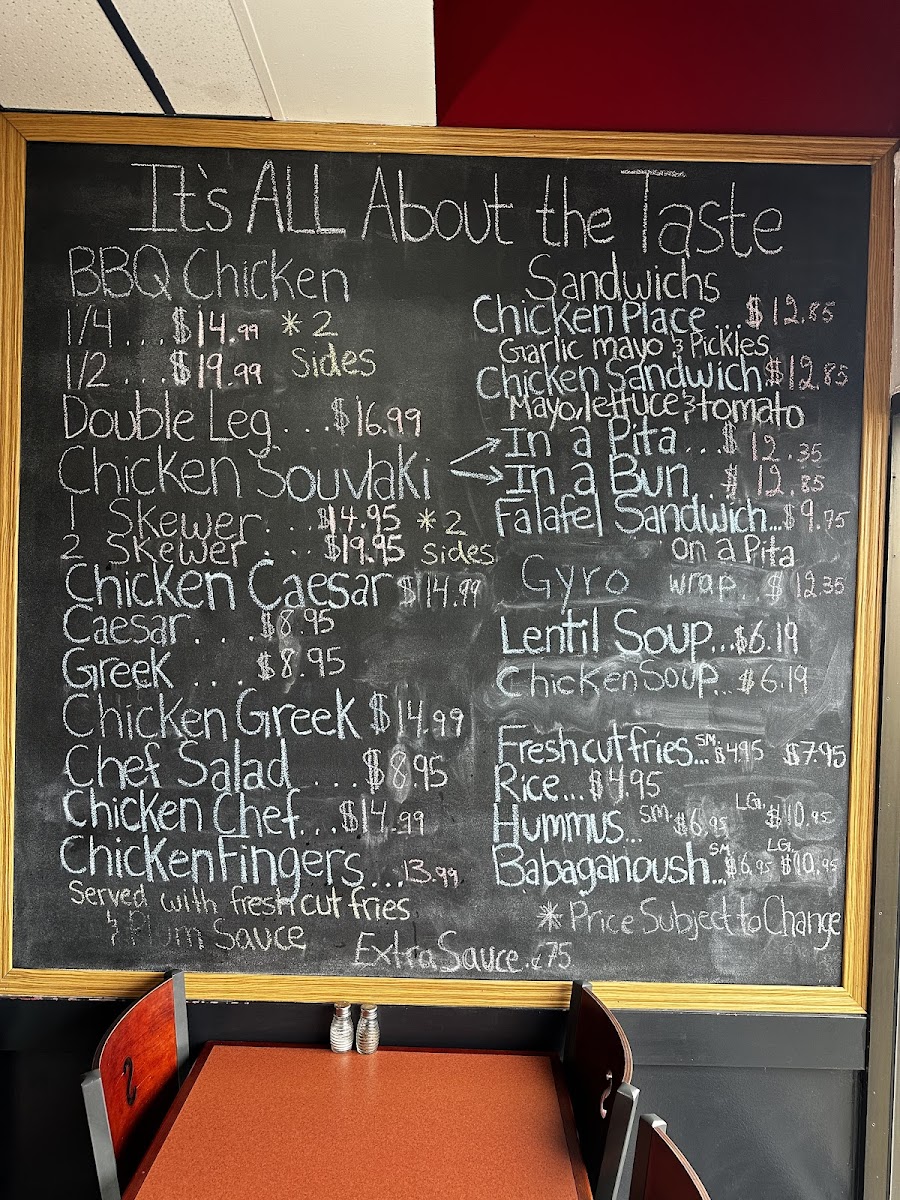 It's ALL About the Taste
BBQ Chicken
1/4 ... $14.99 * 2
1/2 ... $19.99 Sides
Double Leg ... $16.99
Chicken Souvlaki
1 Skewer ... $14.95 * 2
2 Skewer ... $19.95 sides
Chicken Caesar $14.99
Caesar ... $8.95
Greek ... $8.95
Chicken Greek $14.99
Chef Salad .... $8.95
Chicken Chef... $14.99
Chicken Fingers... 13.99
Served with fresh cut fries
& Plum Sauce
Sandwichs
Chicken Place ... $12.85
Garlic mayo & Pickles
Chicken Sandwich $12.85
Mayo, lettuce & tomato
In a Pita ... $12.35
In a Bun .. $12.85
Falafel Sandwich... $9.75
on a Pita
Gyro wrap. $12.35
Lentil Soup... $6.19
Chicken Soup... $6.19
Fresh cut fries... SM. $4.95 $7.95
Rice... $4.95
Hummus... SM. $6.95 LG. $10.95
Babaganoush... SM. $6.95 LG. $10.95
* Price Subject to Change
Extra Sauce. ¢75